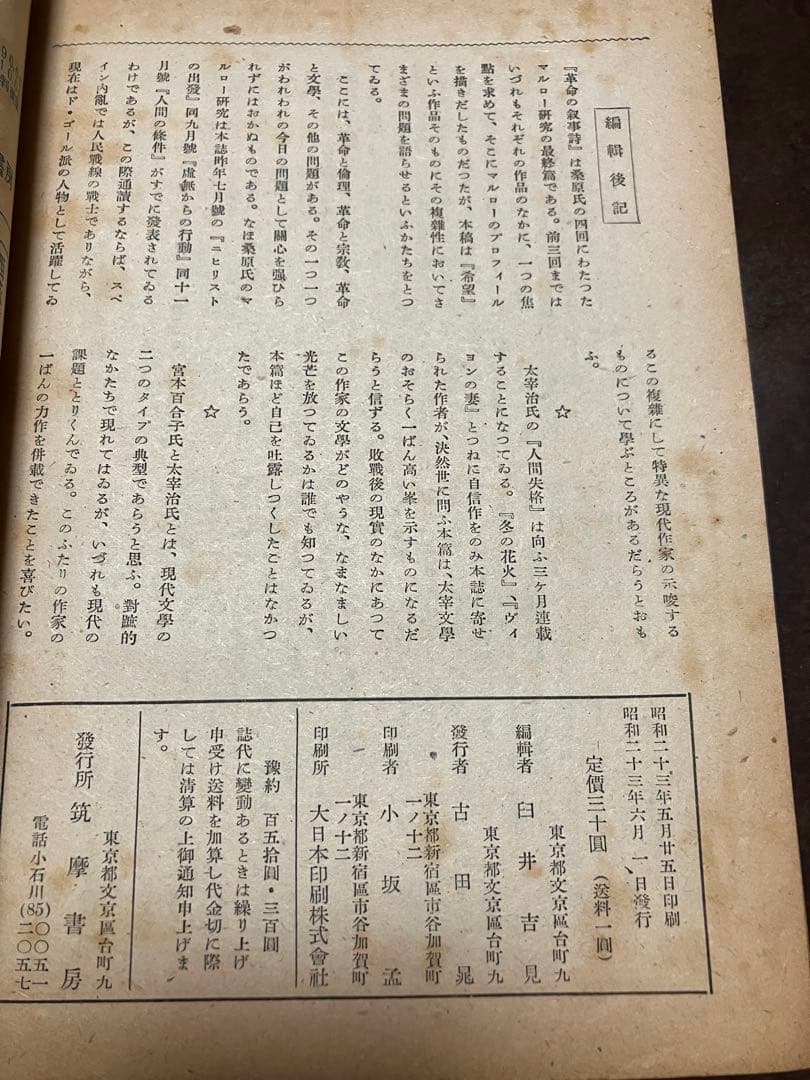 編輯後記
『革命の叙事詩』は桑原氏の四回にわたつた
マルロー研究の最終篇である。前三回までは
いづれもそれぞれの作品のなかに、一つの焦
點を求めて、そこにマルローのプロフィール
を描きだしたものだつたが、本稿は『希望』
といふ作品そのものにその複雜性においてさ
まざまの問題を語らせるといふかたちをとつ
てゐる。
ここには、革命と倫理、革命と宗教、革命
と文學、その他の問題がある。その一つ一つ
がわれわれの今日の問題として關心を强ひら
れずにはおかぬものである。なほ桑原氏のマ
ルロー研究は本誌昨年七月號の『ニヒリスト
の出發』同九月號『虛無からの行動』同十一
月號『人間の條件』がすでに發表されてゐる
わけであるが、この際通讀するならば、スペ
イン內亂では人民戰線の戰士でありながら、
現在はド・ゴール派の人物として活躍してゐ
るこの複雜にして特異な現代作家の示唆する
ものについて學ぶところがあるだらうとおも
ふ。
☆
太宰治氏の『人間失格』は向ふ三ケ月連載
することになつてゐる。『冬の花火』、『ヴィ
ヨンの妻』とつねに自信作をのみ本誌に寄せ
られた作者が、決然世に問ふ本篇は、太宰文學
のおそらく一ばん高い峯を示すものになるだ
らうと信ずる。敗戰後の現實のなかにあつて
この作家の文學がどのやうな、なまなましい
光芒を放つてゐるかは誰でも知つてゐるが、
本篇ほど自己を吐露しつくしたことはなかつ
たであらう。
☆
宮本百合子氏と太宰治氏とは、現代文學の
二つのタイプの典型であらうと思ふ。對蹠的
なかたちで現れてはゐるが、いづれも現代の
課題ととりくんでゐる。このふたりの作家の
一ばんの力作を併載できたことを喜びたい。
昭和二十三年五月廿五日印刷
昭和二十三年六月一日發行
定價三十圓(送料一圓)
東京都文京區台町九
編輯者 臼井吉見
東京都文京區台町九
發行者 古田晁
東京都新宿區市谷加賀町
一ノ十二
印刷者 小坂孟
東京都新宿區市谷加賀町
一ノ十二
印刷所 大日本印刷株式會社
豫約 百五拾圓・三百圓
誌代に變動あるときは繰り上げ
申受け送料を加算し代金切に際
しては清算の上御通知申上げま
す。
東京都文京區台町九
發行所 筑摩書房
電話小石川(85)〇〇五一
二〇五七